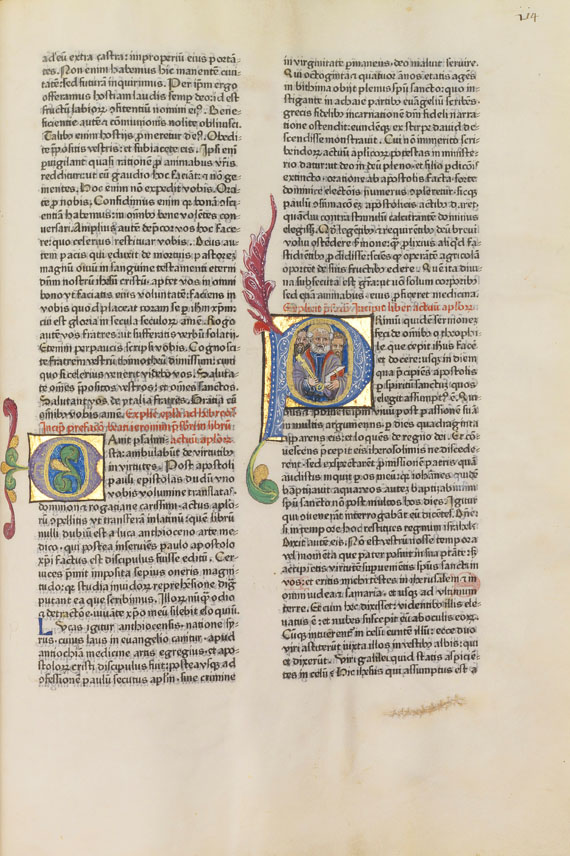 ad eū extra castra: improperiū eius portā=
tes. Non enim habemus hic manentē ciui
tatē: sed futurā inquirimus. Per ip̄m ergo
offeramus hostiam laudis semp deo: id est
fructū labiorꝝ ꝯfitentiū nomini eiꝰ. Bene=
ficientie autē ⁊ cōmunionis nolite obliuisci.
Talibꝰ enim hostijs ꝓmeretur deꝰ. Obedi
te p̄positis vestris: et subiacete eis. Ipsi eni
puigilant quasi rationē ꝓ animabus vr̄is
reddituri: ut cū gaudio hoc faciāt: ⁊ nō ge=
mentes. Hoc enim nō expedit vobis. Ora=
te ꝓ nobis. Confidimus enim qꝛ bonā ꝯsci=
entiā habemus: in oībꝰ bene volētes con=
uersari. Amplius autē deꝑcor vos hoc face
re: quo celerius restituar vobis. Deus au=
tem pacis qui eduxit de mortuis pastorē
magnū ouiū in sanguine testamenti eterni
dn̄m nostrū ihesū cristū: aptet vos in omni
bono ut faciatis eius voluntatē: faciens in
vobis quod placeat coram se ꝑ ihm xp̄m:
cui est gloria in secula seculorꝝ amē. Rogo
autē vos fratres ut sufferatis verbū solatij.
Etenim perpaucis scripsi vobis. Cognosci=
te fratrem vestrū thimotheū dimissum: cum
quo si celerius venerit videbo vos. Saluta
te om̄es p̄positos vestros: et om̄es sanctos.
Salutant vos de ytalia fratres. Gratia cū
oībꝰ vobis amē. Explicit epl̄a ad hebreos.
Incip̄ prefatio beati ieronimi p̄sbiteri in librū
actuū apl̄orꝝ
Canit psalmista: ambulabūt de virtutibꝰ
in virtutes. Post apostoli
pauli epistolas dudū vno
vobis volumine translatas:
domnion ⁊ rogatiane carissimi: actus aplo=
rū ꝯpellitis vt transferā in latinū: quē librū
nulli dubiū est a luca anthioceno arte me
dico: qui postea inseruiēs paulo apostolo
xp̄i factus est discipulus fuisse editū. Cer=
uices p̄mit imposita sepius oneris magni=
tudo: qꝛ studia inuidorꝝ reprehēsione dig
putant ea que scribimus. Illorū nūqꝫ odio
⁊ detractōe iuuāte xp̄o meū silebit eloquiū.
Lucas igitur anthiocensis natione sy=
rus: cuius laus in euangelio canitur: apud
anthiochiā medicine artis egregius: et apo=
stolorꝝ cristi discipulus fuit: postea vsqꝫ ad
ꝯfessionē paulū secutus apl̄m: sine crimine
in virginitate ꝑmanens: deo maluit seruire.
Qui octoginta ⁊ quatuor ānos etatis agēs
in bithinia obijt plenus sp̄u sancto: quo in=
stigante in achaie partibꝰ euāgeliū scribēs:
grecis fidelibꝰ incarnationē dn̄i fideli narra
tione ostendit: eundēqꝫ ex stirpe dauid de=
scendisse monstrauit. Cui nō immerito scri=
bendorꝝ actuū apl̄icorꝝ potestas in ministe=
rio datur: ut deo in deū pleno: et filio ꝑdicōīs
extincto: oratione ab apostolis facta: sorte
dominice electōis numerus ꝯpleretur: sicqꝫ
pauli ꝯsūmatōez apostolicis actibꝰ daret:
quē diu contra stimulū calcitrantē dominus
elegisset.
volui ostendere sermone: qꝫ ꝓlixius aliqd fa=
stidientibꝰ ꝓdidisse: sciēs qꝫ operantē agricolā
oportet de suis fructibꝰ edere. Quē ita diui=
na subsecuta est gr̄a: ut nō solum corporibꝰ
sed etiā animabus eius ꝓficeret medicina.
Explicit p̄facio. Incipit liber actuū apl̄orꝝ
Primū quidē sermonem
feci de omībꝰ o theophi=
le: que cepit ihūs face=
re et docere: usqꝫ in diem
qua p̄cipiēs apostolis
ꝑ spiritū sanctū: quos
elegit assumptꝰ ē. Qui=
bus ⁊ p̄buit se ip̄m viuū post passionē suā
in multis argumentis: ꝑ dies quadraginta
apparens eis: et loquēs de regno dei. Et cō=
uescens p̄cepit eis iherosolimis ne discede=
rent: sed expectarēt ꝓmissionē patris quā
audistis inquit ꝑ os meū: qꝛ iohannes quidē
baptizauit aqua: vos autē baptizabimini
sp̄u sancto nō post multos hos dies. Igitur
qui ꝯuenerāt interrogabāt eū dicētes. Dn̄e:
si in tempore hoc restitues regnum israhel:
Dixit autē eis. Nō est vestrū nosse tempora
vel momēta que pater posuit in sua ptāte: sꝫ
accipietis virtutē supuenientis sp̄us sancti in
vos: et eritis michi testes in iherusalem ⁊ in
omni iudea ⁊ samaria: et usqꝫ ad vltimum
terre. Et cum hec dixisset: videntibꝰ illis ele=
uatus ē: et nubes suscepit eū ab oculis eorꝝ.
Cūqꝫ intuerent in celū euntē illū: ecce duo
viri astiterūt iuxta illos in vestibꝰ albis: qui
et dixerūt. Viri galilei quid statis aspiciē=
tes in celū? Hic ihesus qui assumptus est a